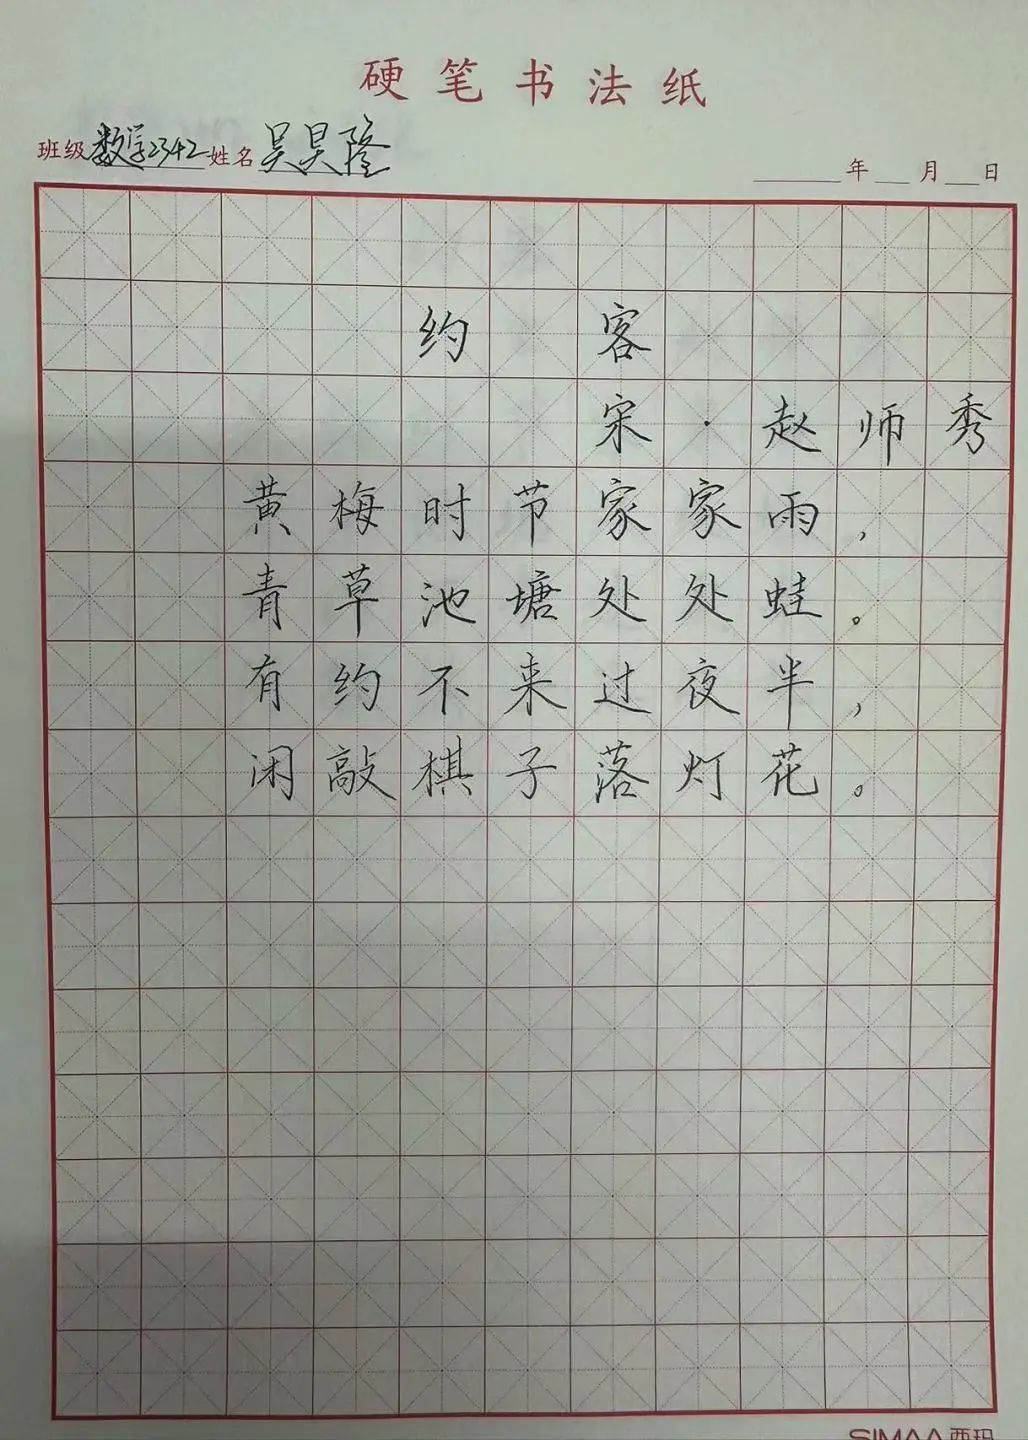 硬笔书法纸
班级数学2342姓名吴昊隆 年 月 日
约客
宋·赵师秀
黄梅时节家家雨，
青草池塘处处蛙。
有约不来过夜半，
闲敲棋子落灯花。
SIMAA西玛